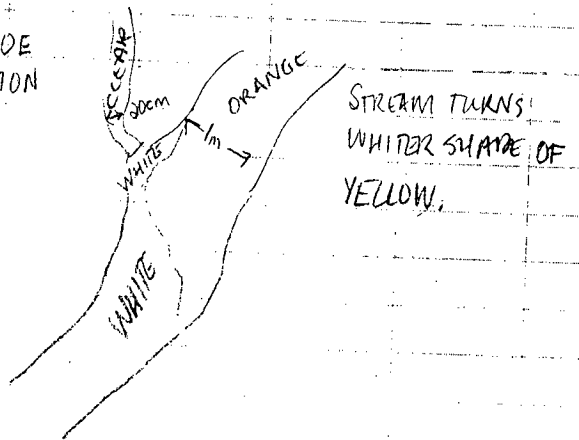 OE
ION
CLEAR
20cm
WHITE
ORANGE
1m
WHITE
STREAM TURNS
WHITER SHADE OF
YELLOW.